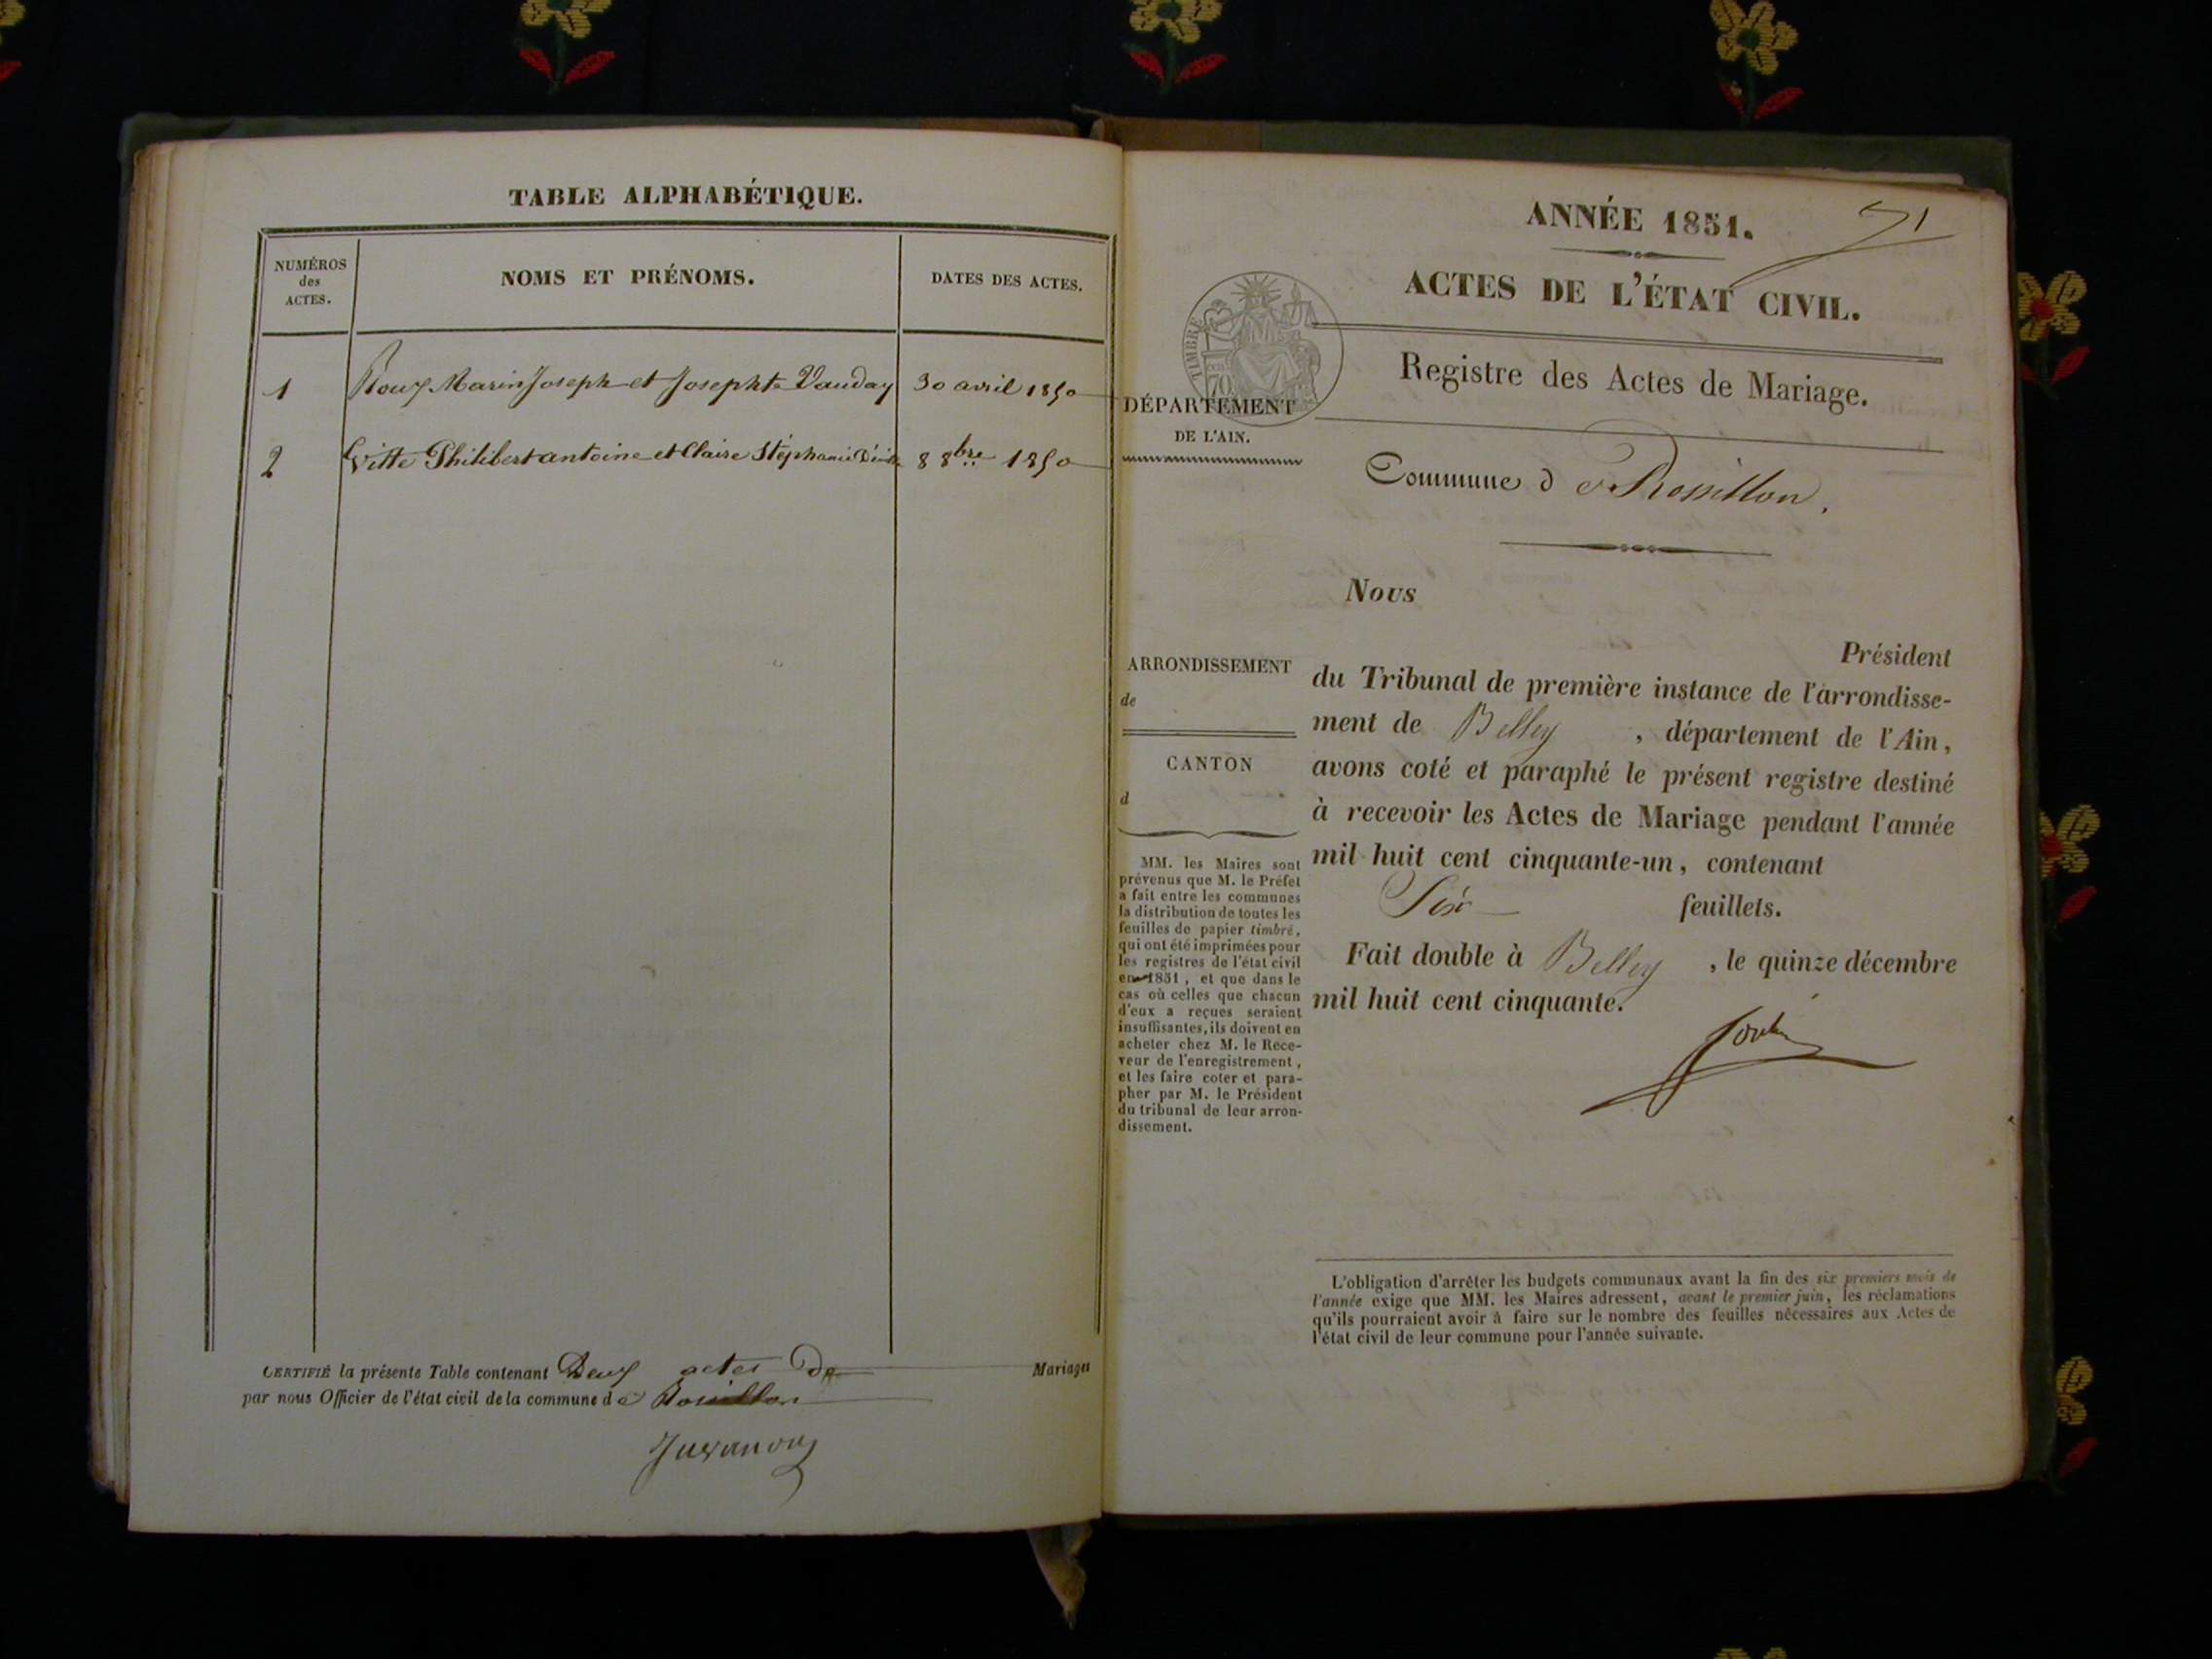 TABLE ALPHABÉTIQUE.
NUMÉROS
des
ACTES.
NOMS ET PRÉNOMS.
DATES DES ACTES.
1 Roux Marin Joseph et Josephte Vauday 30 avril 1850
2 Vitte Philibert antoine et Claire Stéphanie 8 8bre 1850
CERTIFIÉ la présente Table contenant Deux actes de Mariages
par nous Officier de l'état civil de la commune de Rossillon
Juvanon
ANNÉE 1851.
ACTES DE L'ÉTAT CIVIL.
Registre des Actes de Mariage.
TIMBRE
70
DÉPARTEMENT
DE L'AIN.
Commune d e Rossillon.
Nous
Président
du Tribunal de première instance de l'arrondisse-
ment de Belley , département de l'Ain,
avons coté et paraphé le présent registre destiné
à recevoir les Actes de Mariage pendant l'année
mil huit cent cinquante-un, contenant
Six feuillets.
Fait double à Belley , le quinze décembre
mil huit cent cinquante.
ARRONDISSEMENT
de
CANTON
d
MM. les Maires sont
prévenus que M. le Préfet
a fait entre les communes
la distribution de toutes les
feuilles de papier timbré,
qui ont été imprimées pour
les registres de l'état civil
en 1851, et que dans le
cas où celles que chacun
d'eux a reçues seraient
insuffisantes, ils doivent en
acheter chez M. le Rece-
veur de l'enregistrement,
et les faire coter et para-
pher par M. le Président
du tribunal de leur arron-
dissement.
L'obligation d'arrêter les budgets communaux avant la fin des six premiers mois de
l'année exige que MM. les Maires adressent, avant le premier juin, les réclamations
qu'ils pourraient avoir à faire sur le nombre des feuilles nécessaires aux Actes de
l'état civil de leur commune pour l'année suivante.